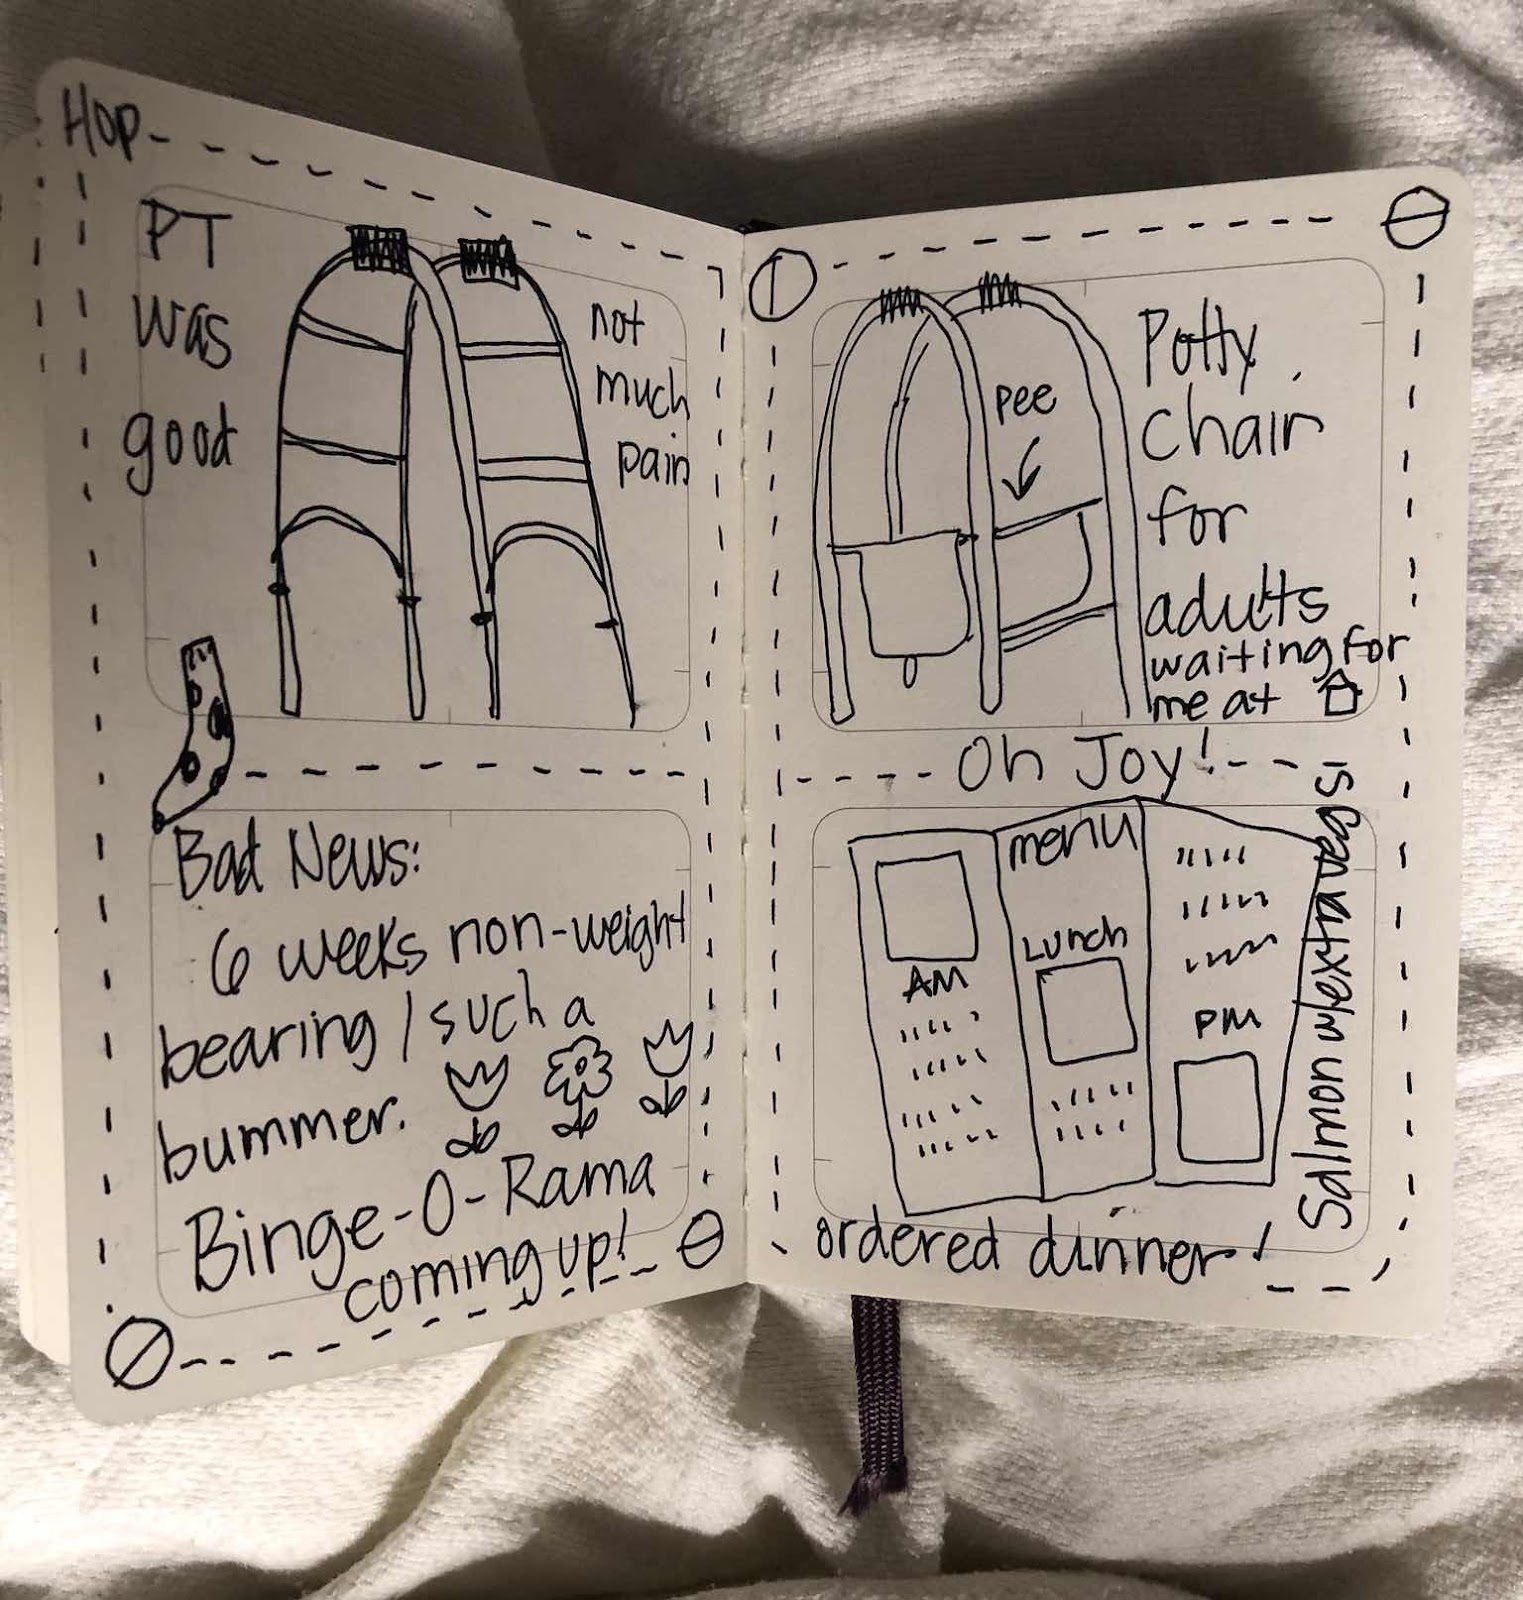 Hop
PT
was
good
not
much
pain
Bad News:
6 weeks non-weight
bearing / such a
bummer.
Binge-O-Rama
coming up!
pee
Potty
chair
for
adults
waiting for
me at
Oh Joy!
menu
AM
Lunch
PM
Salmon w/extra vegs
ordered dinner!